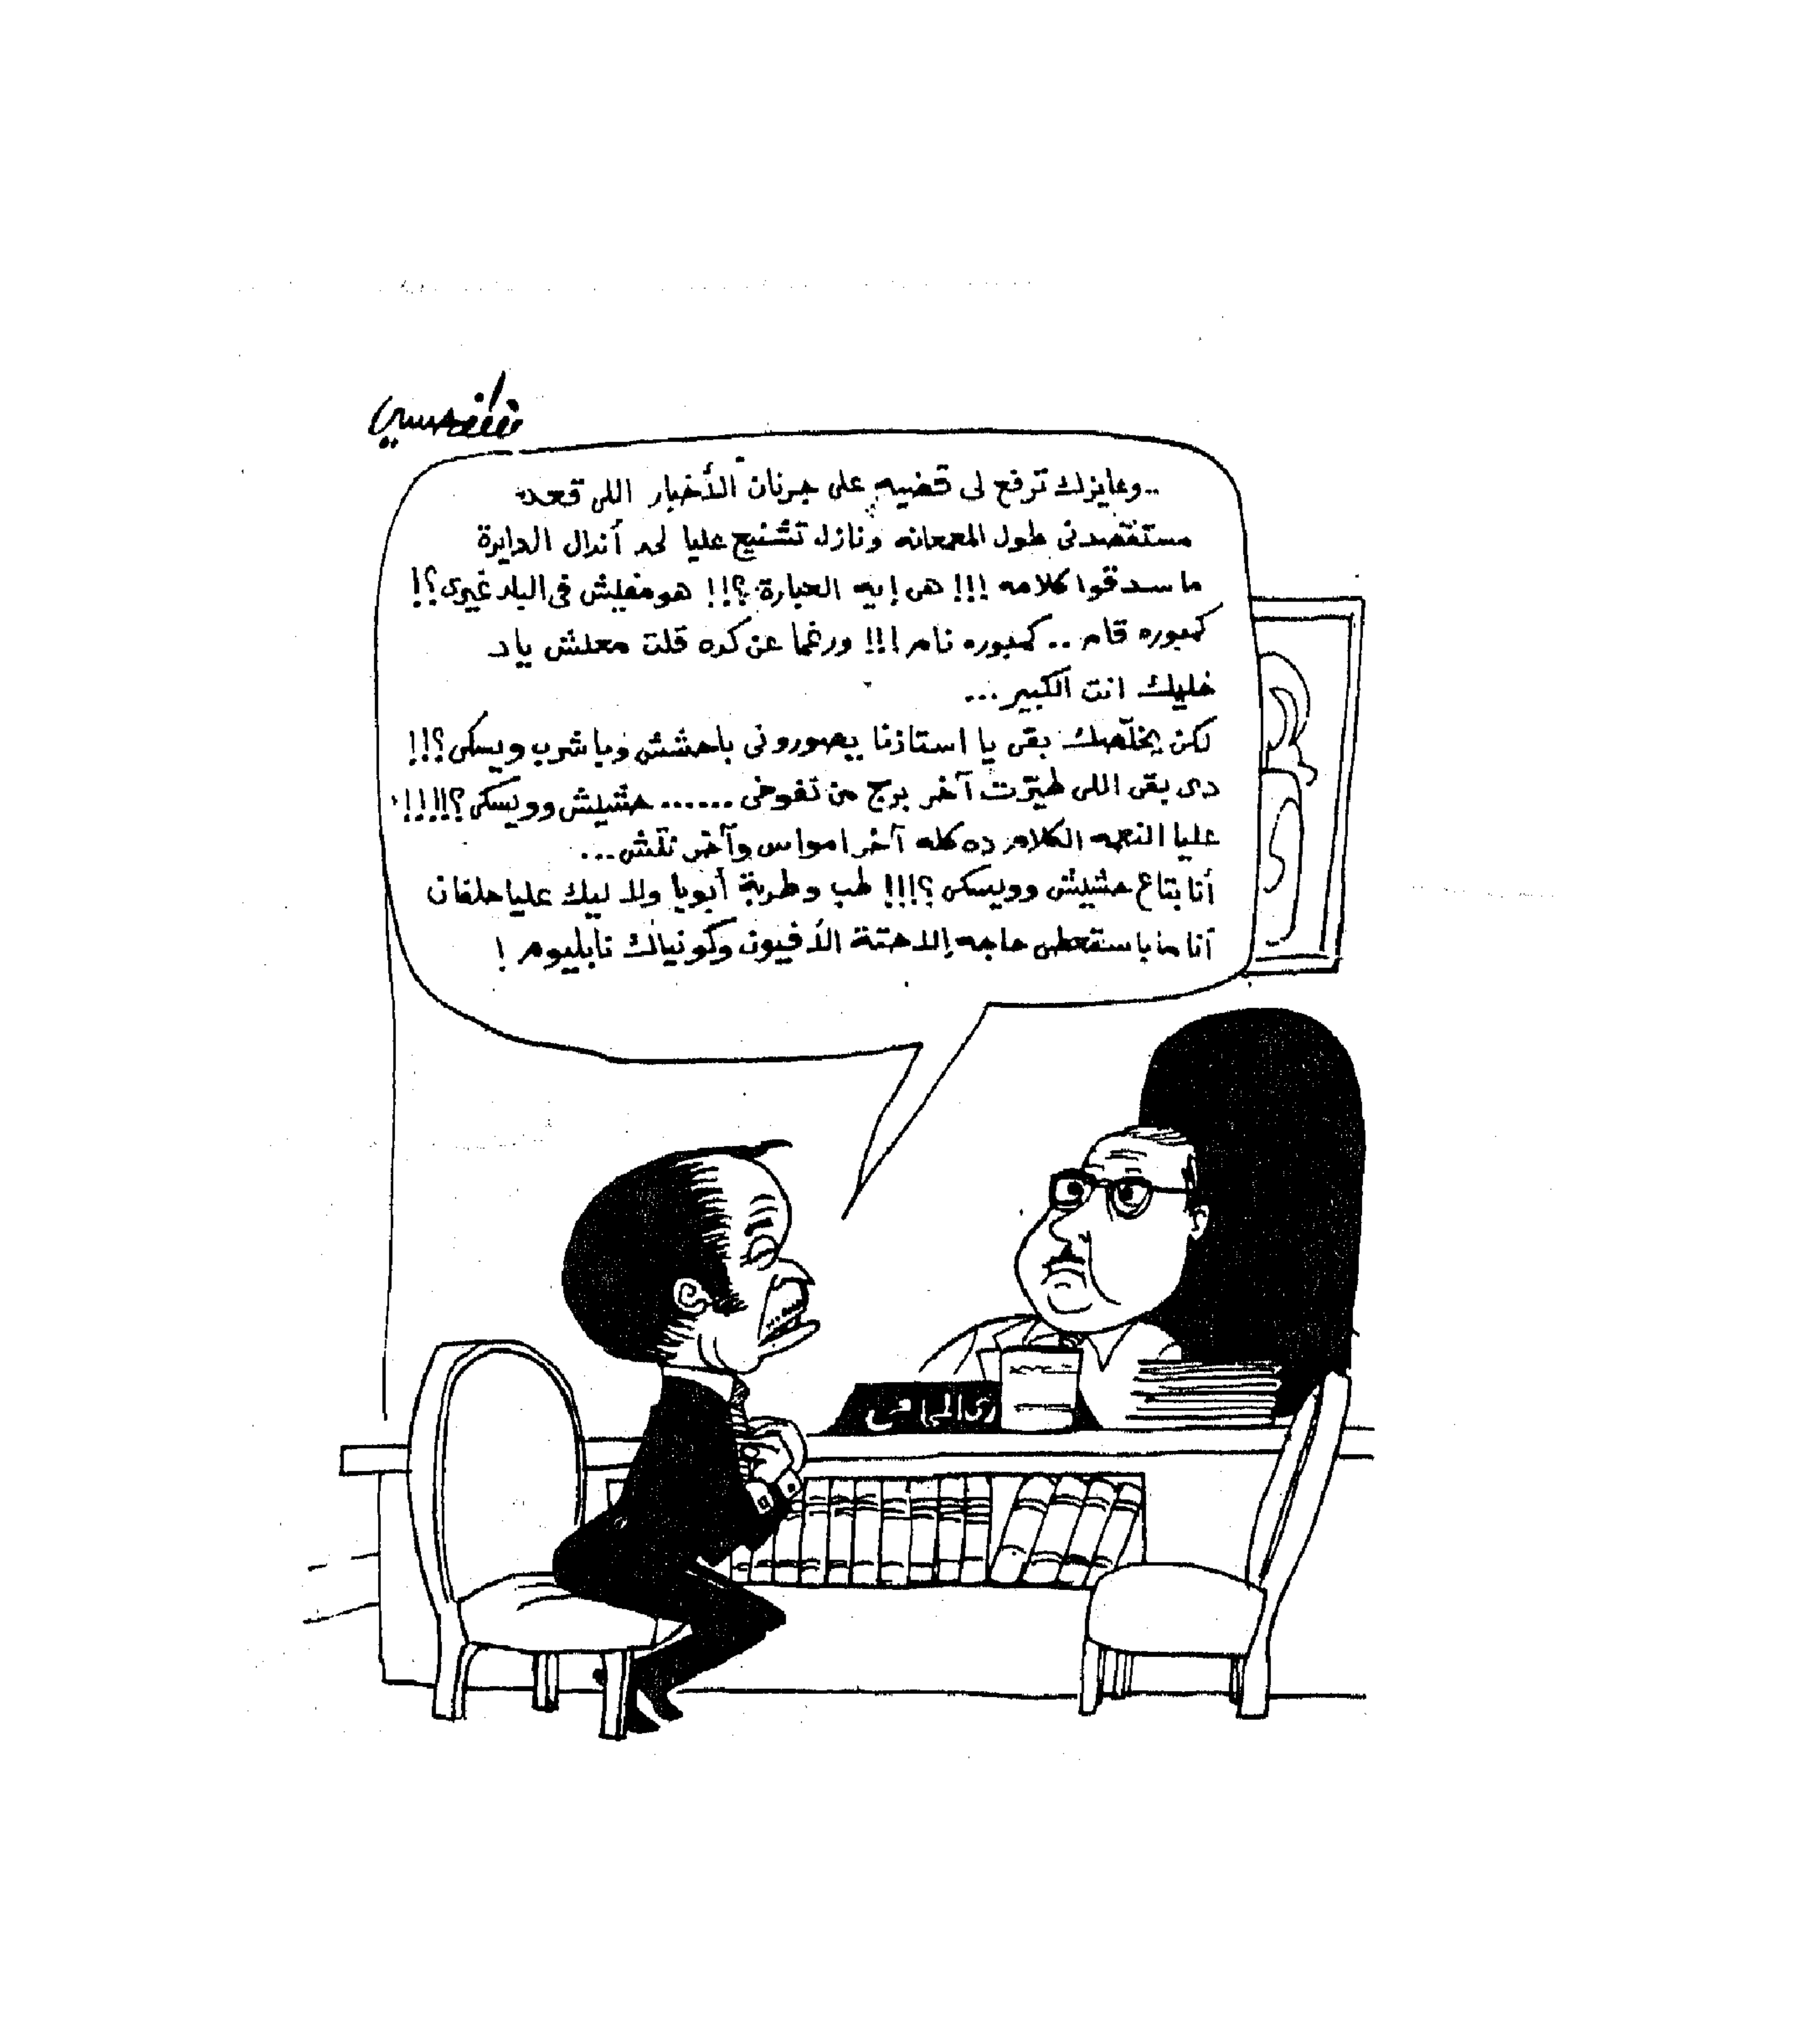 ..وعايزك ترفع لى قضيه على جرنان الأخبار اللى قعد
مستقصدنى طول المعمعانه ونازل تشنيع عليا لحد أندال الدايرة
ما سدقوا كلامه !!! هى إيه العبارة ؟!! هو مفيش فى البلد غيرى؟!
كمبوره قام .. كمبوره نام !!! ورغما عن كده قلت معلش ياد
خليك انت الكبير ...
لكن يخلّصك بقى يا استاذنا يصورونى باحشش وباشرب ويسكى؟!!
دى بقى اللى طيّرت آخر برج من نفوخى ...... حشيش وويسكى؟!!!!!
عليا النعمه الكلام ده كله آخر امواس وآخر نقش ...
أنا بتاع حشيش وويسكى ؟!!! طب وطربة أبويا ولا ليك عليا حلفان
أنا ما باستقطى حاجه إلا حتة الأفيون وكونياك نابليوم !
رى المحامى